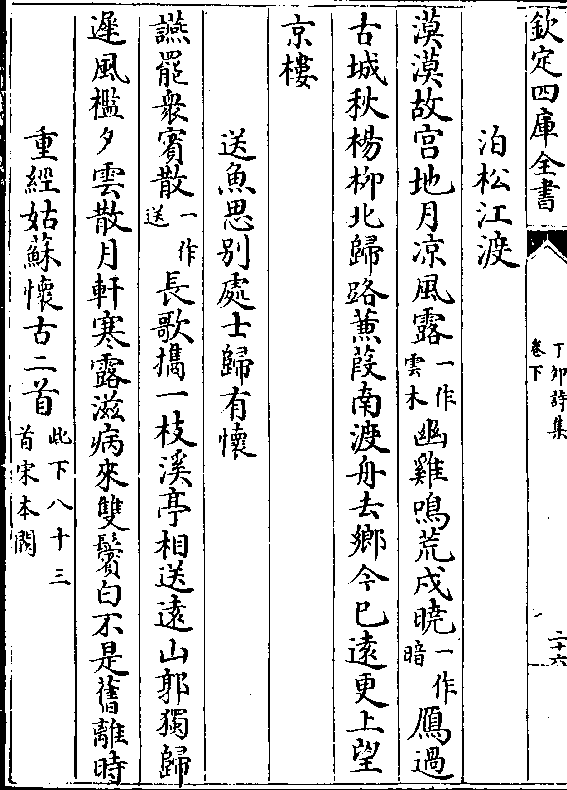 欽定四庫全書
丁卯詩集
卷下
二十六
泊松江渡
漠漠故宫地月凉風露一作雲木幽雞鳴荒戍曉一作暗鴈過
古城秋楊柳北歸路蒹葭南渡舟去鄉今已遠更上望
京樓
送魚思别處士歸有懷
讌罷衆賓散一作送長歌攜一枝溪亭相送遠山郭獨歸
遲風檻夕雲散月軒寒露滋病來雙鬢白不是舊離時
重經姑蘇懷古二首此下八十三首宋本闕